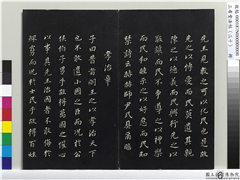 先王見教之可以化民也是故
先之以博愛而民莫遺其親
陳之以德義而民興行先之以
敬讓而民不爭導之以禮樂
而民和睦示之以好惡而民知
禁詩云赫赫師尹民具爾瞻
孝治章
子曰昔者明王之以孝治天下
也不敢遺小國之臣而況於公
侯伯子男乎故得萬國之懽心
以事其先王治國者不敢侮於
鰥寡而況於士民乎故得百姓